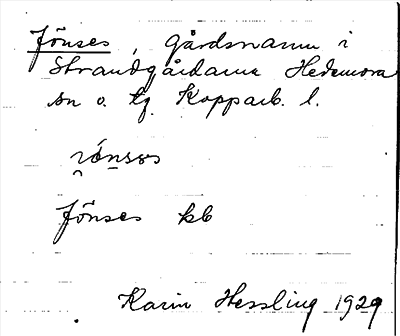 Jönses, gårdsnamn i
Strandgårdarne Hedemora
sn o. tg Kopparb. l.
Jönses kb
Karin Hessling 1929